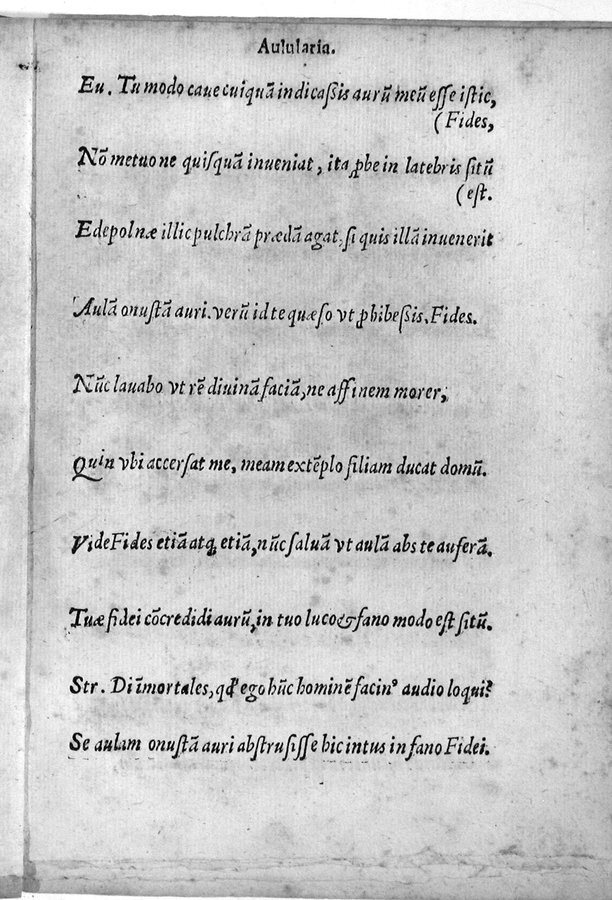 Aulularia.
Eu. Tu modo caue cuiquã indicaßis aurũ meũ eſſe iſtic,
(Fides,
Nõ metuo ne quiſquã inueniat, ita ꝓbe in latebris ſitũ
(eſt.
Edepol næ illic pulchrã prædã agat, ſi quis illã inuenerit
Aulã onuſtã auri. verũ id te quæſo vt ꝓhibeßis. Fides.
Nũc lauabo vt rẽ diuinã faciã, ne affinem morer,
Quin vbi accerſat me, meam extẽplo filiam ducat domũ.
Vide Fides etiã atq; etiã, nũc ſaluã vt aulã abs te auferã.
Tuæ fidei cõcredidi aurũ, in tuo luco & fano modo eſt ſitũ.
Str. Di ĩmortales, qđ ego hũc hominẽ facinꝰ audio loqui?
Se aulam onuſtã auri abſtruſiſſe hic intus in fano Fidei.